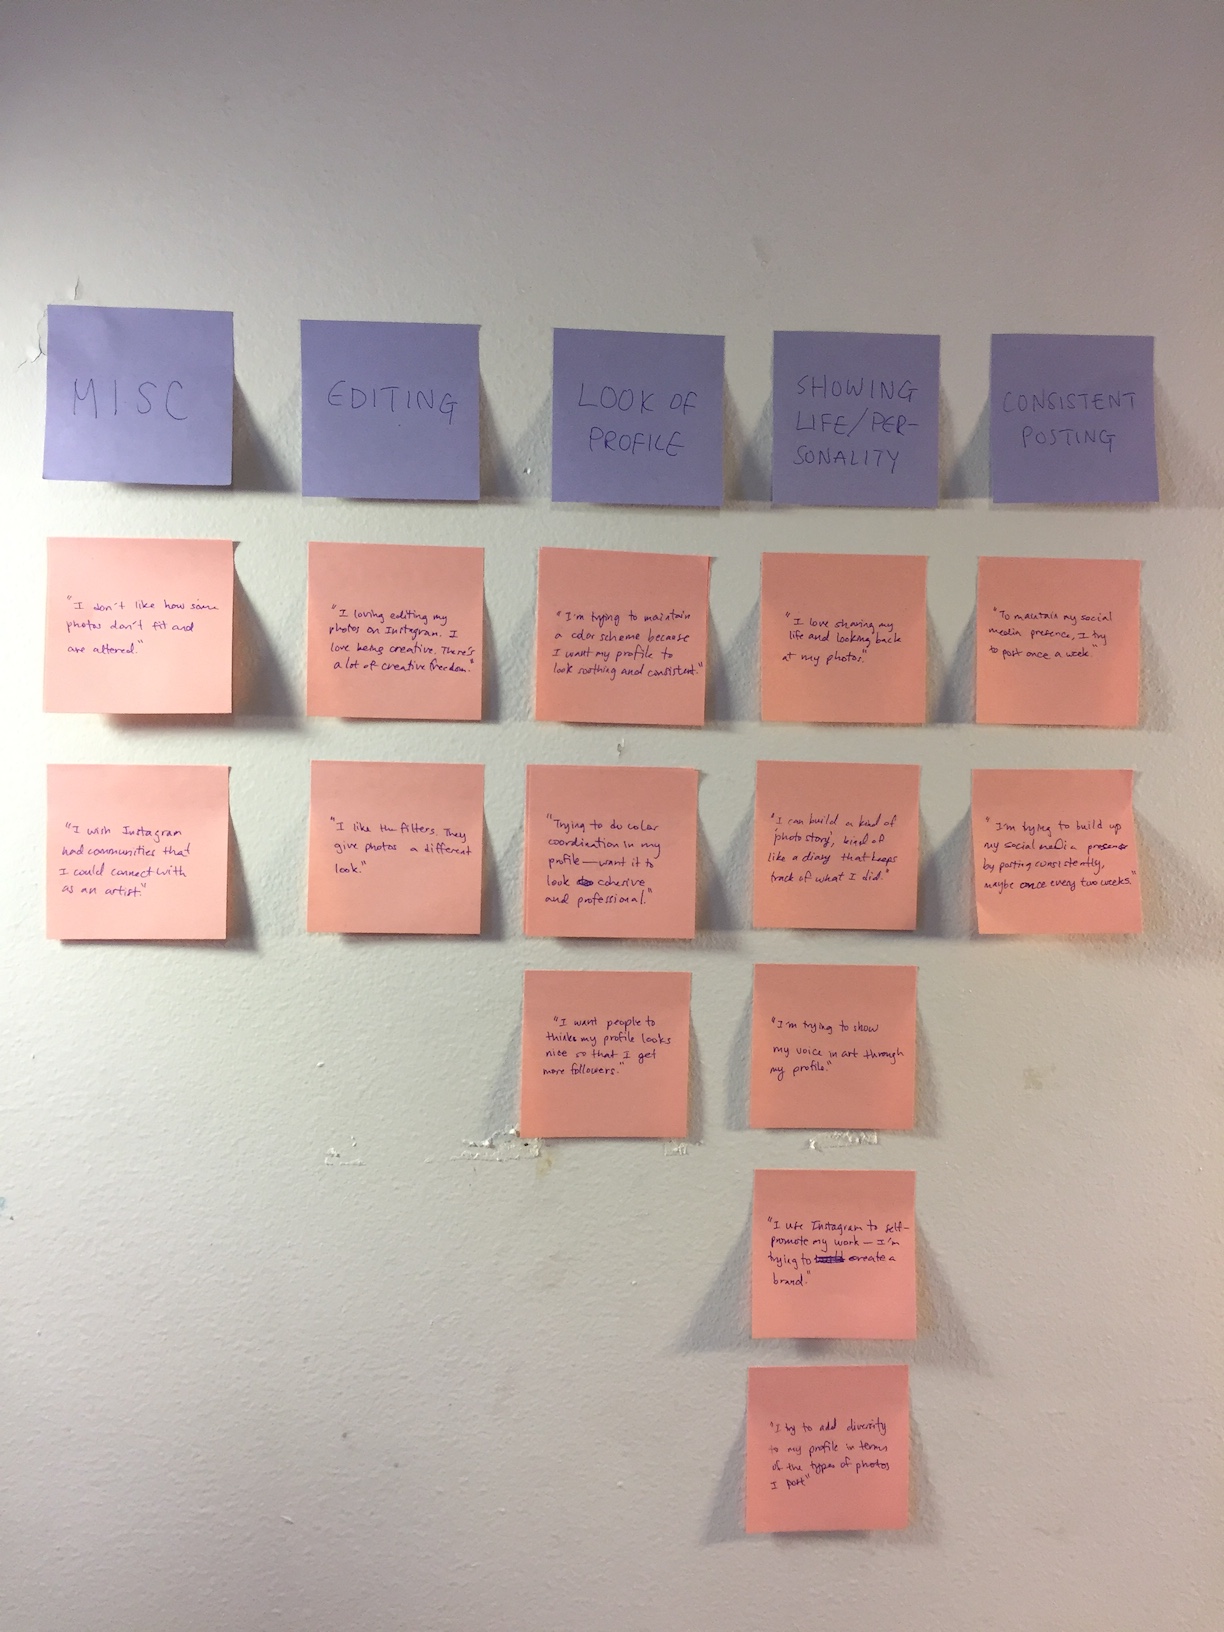 MISC
"I don't like how some
photos don't fit and
are altered."
"I wish Instagram
had communities that
I could connect with
as an artist."
EDITING
"I loving editing my
photos on Instagram. I
love being creative. There's
a lot of creative freedom."
"I like the filters. They
give photos a different
look."
LOOK OF
PROFILE
"I'm trying to maintain
a color scheme because
I want my profile to
look soothing and consistent."
"Trying to do color
coordination in my
profile—want it to
look cohesive
and professional."
"I want people to
thinks my profile looks
nice so that I get
more followers."
SHOWING
LIFE/PER-
SONALITY
"I love sharing my
life and looking back
at my photos."
"I can build a kind of
'photo story', kind of
like a diary that keeps
track of what I did."
"I'm trying to show
my voice in art through
my profile."
"I use Instagram to self-
promote my work — I'm
trying to create a
brand."
"I try to add diversity
to my profile in terms
of the types of photos
I post"
CONSISTENT
POSTING
"To maintain my social
media presence, I try
to post once a week."
"I'm trying to build up
my social media presence
by posting consistently,
maybe once every two weeks."